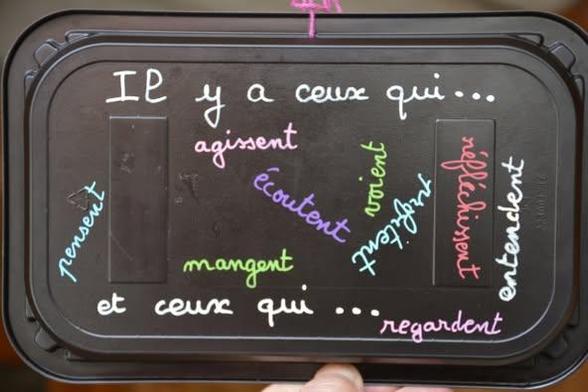 Il y a ceux qui...
agissent
écoutent
voient
réfléchissent
entendent
pensent
mangent
et ceux qui ...
regardent